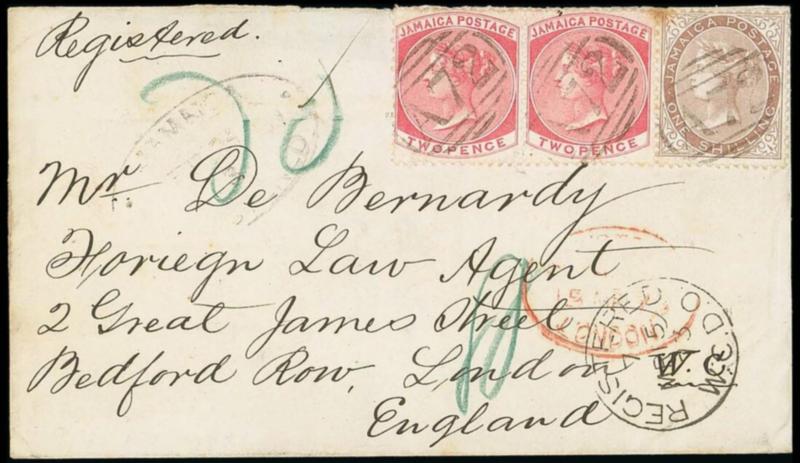 Registered.
JAMAICA POSTAGE
TWO PENCE
JAMAICA POSTAGE
TWO PENCE
JAMAICA POSTAGE
ONE SHILLING
Mr De Bernardy
Foriegn Law Agent
2 Great James Street
Bedford Row, London
W.C.
England
LONDON
REGISTERED